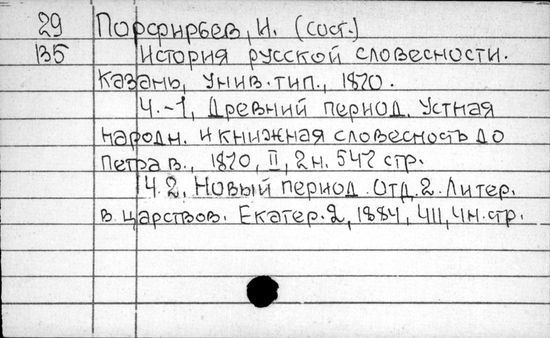 29 Порфирьев, И. (сост.)
135 История русской словесности.
Казань, Унив. тип., 1870.
Ч.-1, Древний период. Устная
народн. и книжная словесность до
Петра в., 1870, II, 2н. 547 стр.
Ч. 2. Новый период. Отд. 2. Литер.
в царствов. Екатер. 2, 1884, 411, 4н. стр.